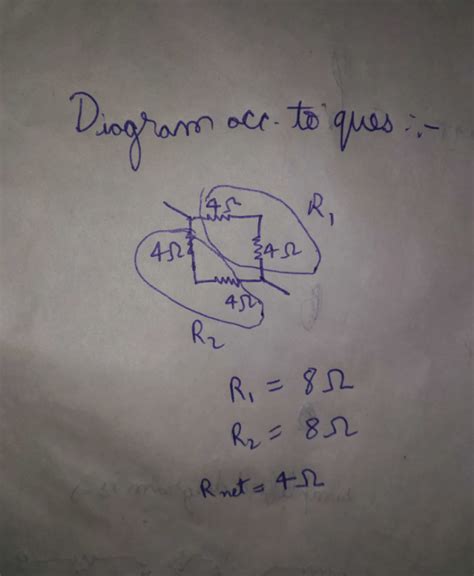 Diagram acc. to ques :-
4Ω
R₁
4Ω
4Ω
4Ω
R₂
R₁ = 8Ω
R₂ = 8Ω
Rnet = 4Ω